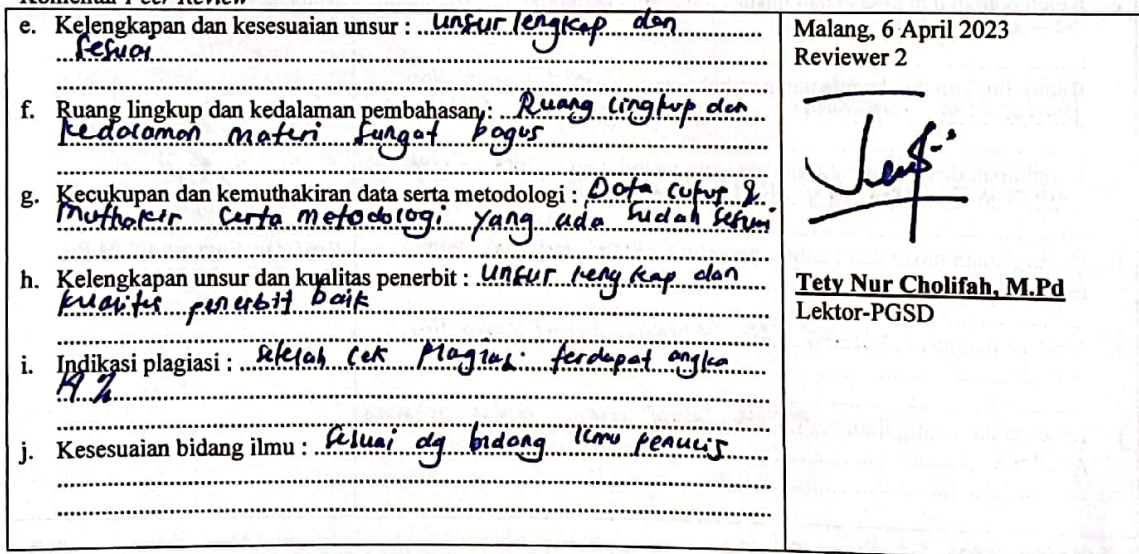 Komentar Peer Review
e. Kelengkapan dan kesesuaian unsur : unsur lengkap dan
sesuai
f. Ruang lingkup dan kedalaman pembahasan : Ruang lingkup dan
kedalaman materi sangat bagus
g. Kecukupan dan kemuthakiran data serta metodologi : Data cukup &
muthakir serta metodologi yang ada sudah sesuai
h. Kelengkapan unsur dan kualitas penerbit : unsur lengkap dan
kualitas penerbit baik
i. Indikasi plagiasi : setelah cek plagiasi terdapat angka
j. Kesesuaian bidang ilmu : sesuai dg bidang ilmu penulis
Malang, 6 April 2023
Reviewer 2
Tety Nur Cholifah, M.Pd
Lektor-PGSD